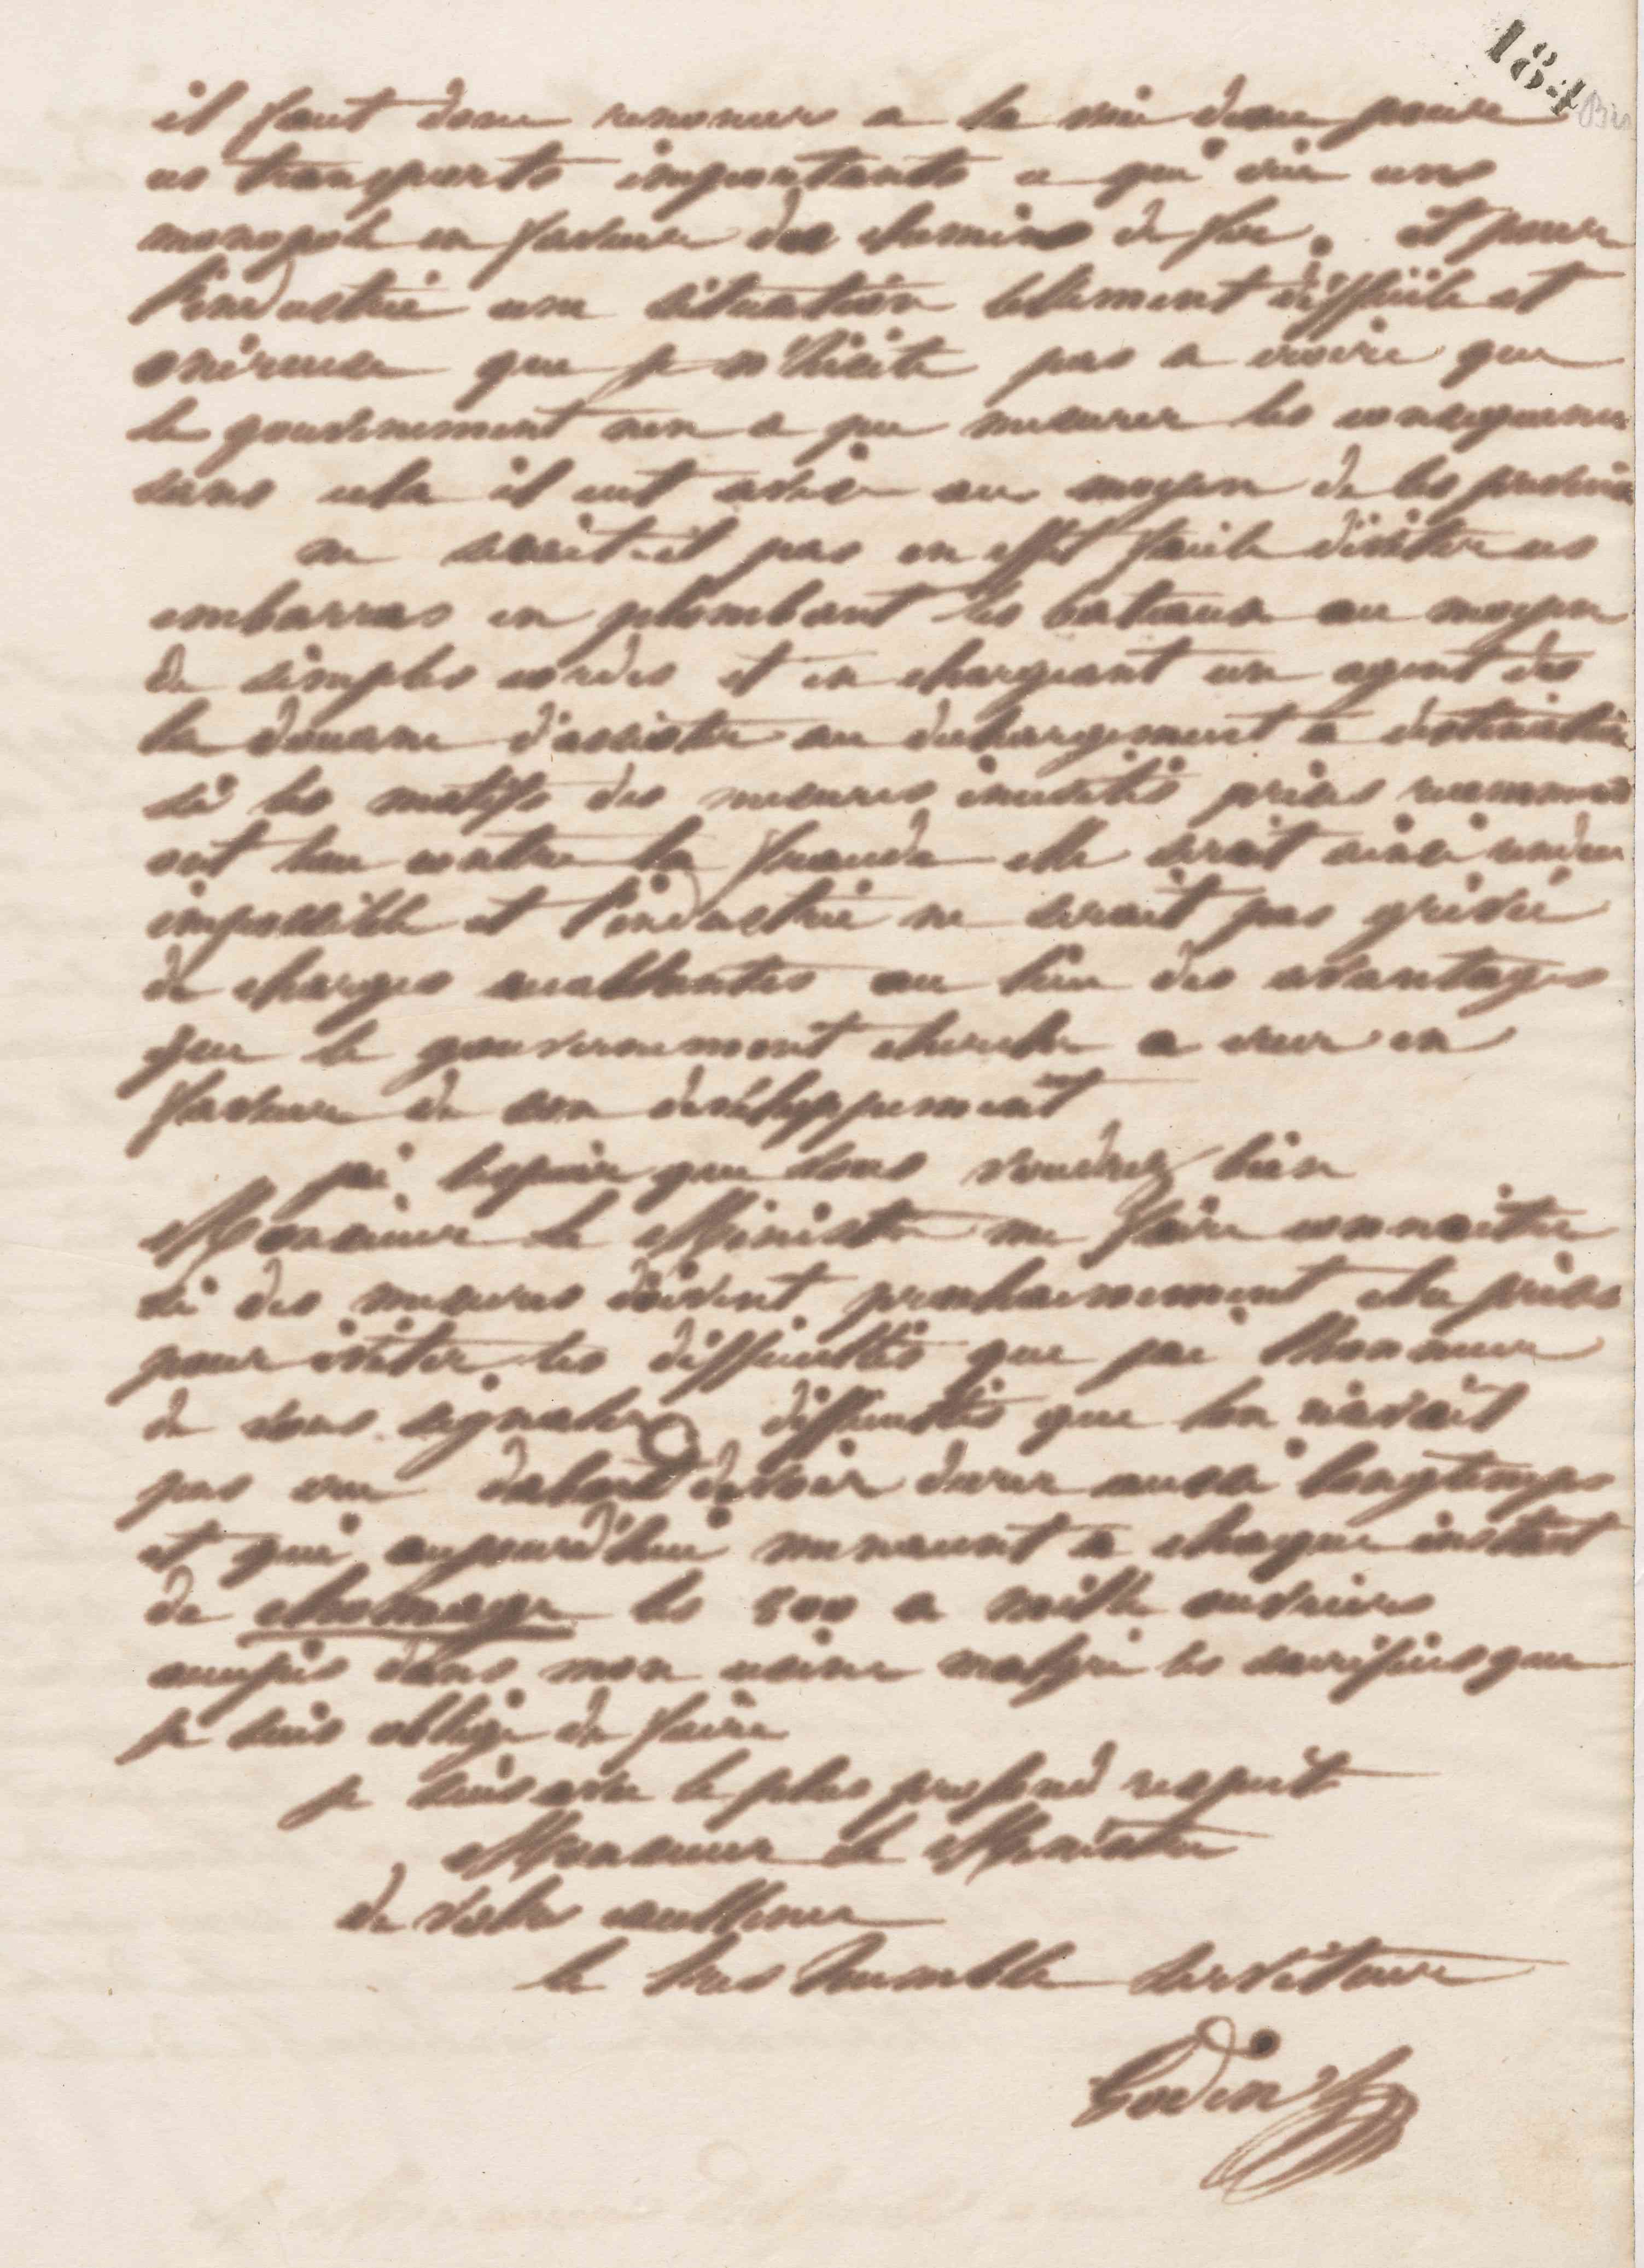 184 Bis
il faut donc renoncer a la voie deau pour
ces transports importants ce qui crée un
monopole en faveur des chemins de fer. et pour
l'industrie une situation tellement difficile et
onéreuse que je n'hésite pas a croire que
le gouvernement nen a pu mesurer les consequences
sans cela il eut avisé au moyen de les prévenir
ne serait-il pas en effet facile d'éviter ces
embarras en plombant les bateaux au moyen
de simples cordes et en chargeant un agent de
la douane d'assister au dechargement a destination
si les motifs des mesures inusités prises
ont lieu contre la fraude elle serait ainsi rendue
impossible et l'industrie ne serait pas grévée
de charges accablantes au lieu des avantages
que le gouvernement cherche a créer en
faveur de son développement
jai lespoir que vous voudrez bien
Monsieur le Ministre me faire connaitre
si des mesures doivent prochainement etre prises
pour éviter les difficultés que jai lhonneur
de vous signaler difficultés que lon navait
pas cru dabord devoir durer aussi longtemps
et qui aujourd'hui menacent a chaque instant
de chomage les 800 a mille ouvriers
occupés dans mon usine malgré les sacrifices que
je suis obligé de faire
je suis avec le plus profond respect
Monsieur le Ministre
de votre excellence
le tres humble serviteur
Godin